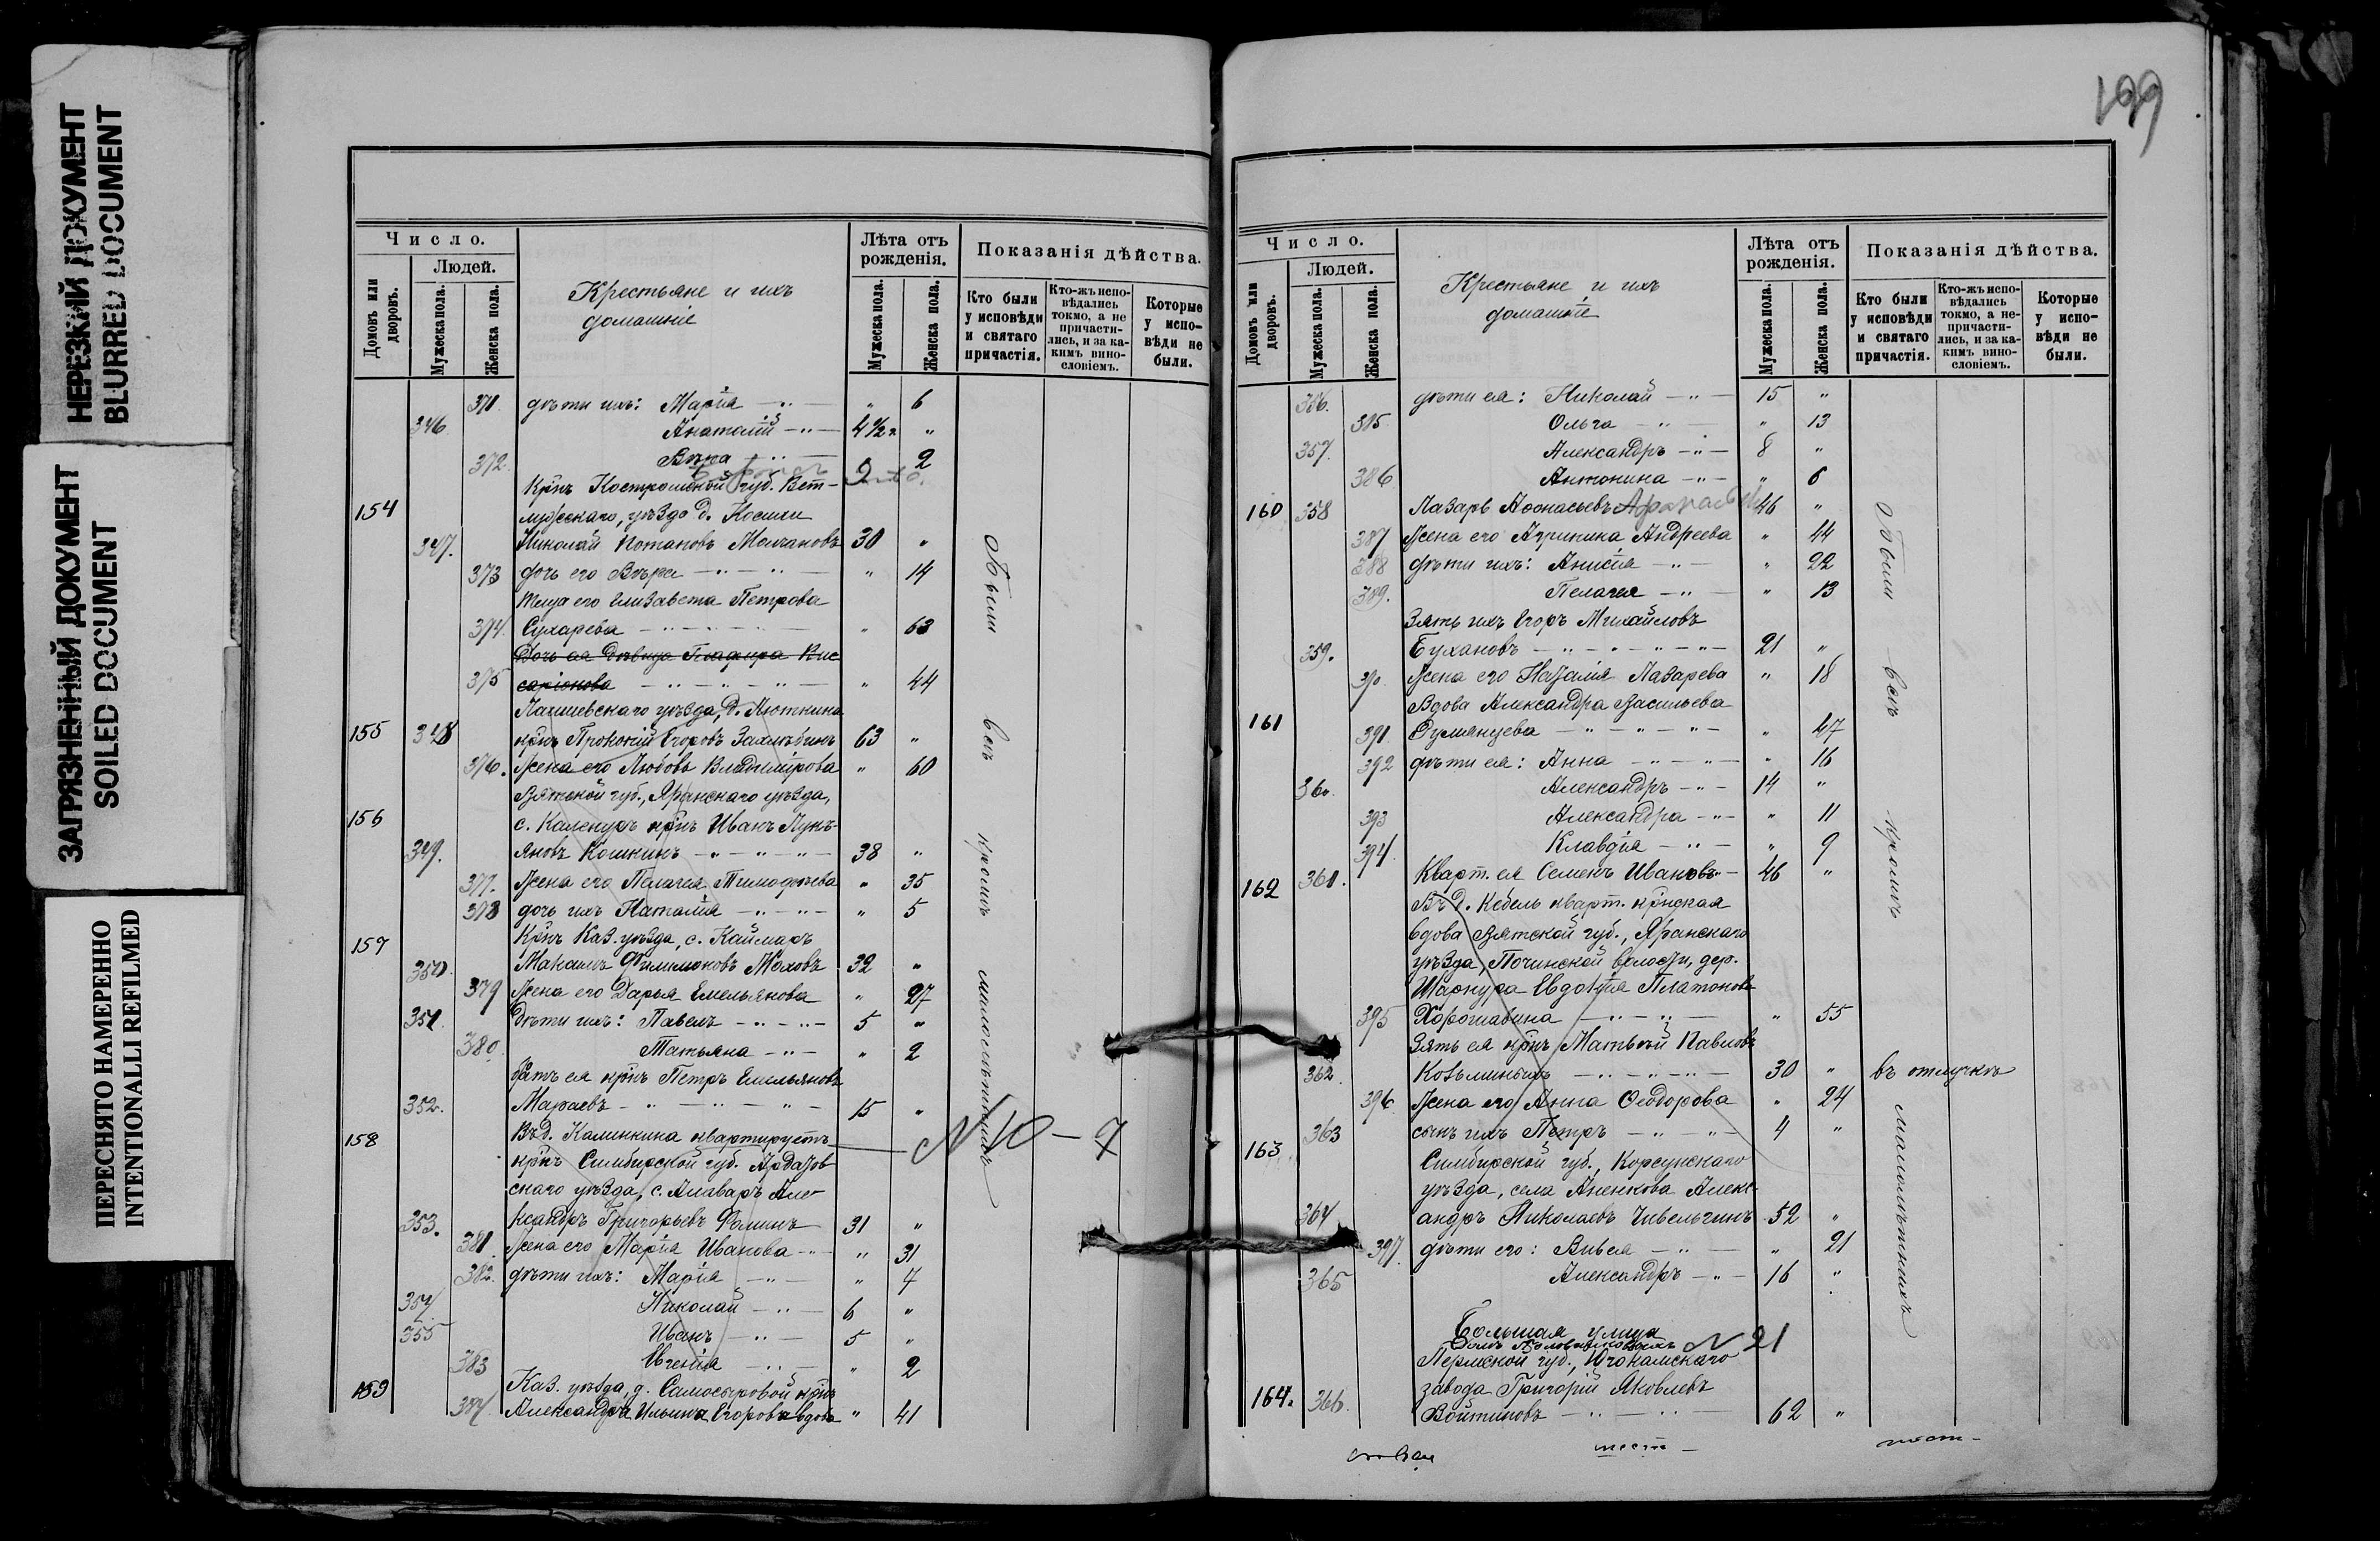 НЕРЕЗКИЙ ДОКУМЕНТ
BLURRED DOCUMENT
ЗАГРЯЗНЕННЫЙ ДОКУМЕНТ
SOILED DOCUMENT
ПЕРЕСНЯТО НАМЕРЕННО
INTENTIONALLI REFILMED
Число.
Людей.
Домовъ или дворовъ.
Мужеска пола.
Женска пола.
Крестьяне и ихъ
домашніе
Лѣта отъ рожденія.
Мужеска пола.
Женска пола.
Показанія дѣйства.
Кто были у исповѣди и святаго причастія.
Кто-жъ исповѣдались токмо, а не причастились, и за какимъ винословіемъ.
Которые у исповѣди не были.
371. дѣти ихъ: Марія — " — " 6
346 Анатолій — " — 4½ "
372. Вѣра — " — 2
Крнъ Костромской губ. Вет-
154 лужскаго, уѣзда д.
347. Николай Потаповъ Молчановъ 30 "
373 дочь его Вѣра — " — " — " 14
Теща его Елизавета Петрова
374. Сухарева — " — " — " 63
Дочь ея Дѣвица Глафира Вис
375 саріонова — " — " — " — " 44
Лаишевскаго уѣзда, д.
155 348 крнъ Прокопій Егоровъ 63 "
376. Жена его Любовь Владимірова " 60
Вятской губ., Яранскаго уѣзда,
156 с. крнъ Иванъ Лукь-
349. яновъ Кошкинъ — " — " — " — 38 "
377. Жена его Пелагея Тимофѣева " 35
378 дочь ихъ Наталія — " — " — " 5
157 Крнъ Каз. уѣзда, с. Каймаръ
350. Максимъ Филимоновъ Моховъ 32 "
379 Жена его Дарья Емельянова " 27
351. Дѣти ихъ: Павелъ — " — " — 5 "
380. Татьяна — " — " 2
братъ ея крнъ Петръ Емельяновъ
352. Мараевъ — " — " — " — 15 "
158 Въ д. Калинкина квартируетъ — N 10 — 7
крнъ Симбирской губ. Ардатов
скаго уѣзда, с. Але-
353. ксандръ Григорьевъ Фоминъ 31 "
381. Жена его Марія Иванова — " — " 31
382. дѣти ихъ: Марія — " — " 7
354. Николай — " — 6 "
355 Иванъ — " — 5 "
383 Евгенія — " — " 2
Каз. уѣзда, д. Самосыровой крнъ
159 384. Александра Ильина Егорова вдова " 41
Были всѣ кромѣ малолѣтнихъ
199
Число.
Людей.
Домовъ или дворовъ.
Мужеска пола.
Женска пола.
Крестьяне и ихъ
домашніе
Лѣта отъ рожденія.
Мужеска пола.
Женска пола.
Показанія дѣйства.
Кто были у исповѣди и святаго причастія.
Кто-жъ исповѣдались токмо, а не причастились, и за какимъ винословіемъ.
Которые у исповѣди не были.
356. дѣти ея: Николай — " — 15 "
385 Ольга — " — " 13
357. Александръ — " — 8 "
386 Антонина — " — " 6
160 358 Лазарь Аѳонасьевъ 46 "
387 Жена его Агрипина Андреева " 44
388 дѣти ихъ: Анисія — " — " 22
389. Пелагея — " — " 13
Зять ихъ Егоръ Михайловъ
359. Бухановъ — " — " — " — " — 21 "
390. Жена его Наталія Лазарева " 18
161 Вдова Александра Васильева
391. Румянцева — " — " — " — " 47
392 дѣти ея: Анна — " — " — " 16
360. Александръ — " — 14 "
393 Александра — " — " 11
394. Клавдія — " — " 9
162 361. Кварт. ея Семенъ Ивановъ — 46 "
Въ д. Кебель кварт. крнская
вдова Вятской губ., Яранскаго
уѣзда, Починской волости, дер.
Шаркура Евдокія Платонова
395 Хорошавина — " — " — " 55
Зять ея крнъ Матвѣй Павловъ
362. Козьминыхъ — " — " — " — 30 " въ отлучкѣ
396. Жена его Анна Ѳеодорова " 24
363 сынъ ихъ Петръ — " — " — 4 "
163 Симбирской губ., Корсунскаго
уѣзда, села Аненкова Алекс-
364 андръ Николаевъ Чивельгинъ 52 "
397. дѣти его: Вивея — " — " 21
365 Александръ — " — 16 "
Большая улица
N 21
Пермской губ., Югокамскаго
завода Григорій Яковлевъ
164. 366. Войтиновъ — " — " — 62 "
Были всѣ кромѣ малолѣтнихъ